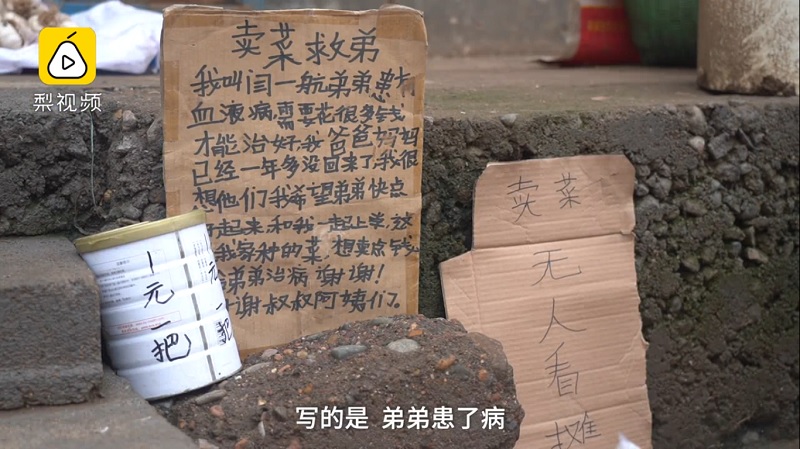 梨视频
卖菜救弟
我叫闫一航弟弟患有
血液病,需要花很多钱
才能治好,我爸爸妈妈
已经一年多没回来了,我很
想他们我希望弟弟快点
好起来和我一起上学,这
我家种的菜,想卖点钱
弟弟治病谢谢!
谢叔叔阿姨们。
1元一把
元一把
卖菜
无人看摊
写的是 弟弟患了病